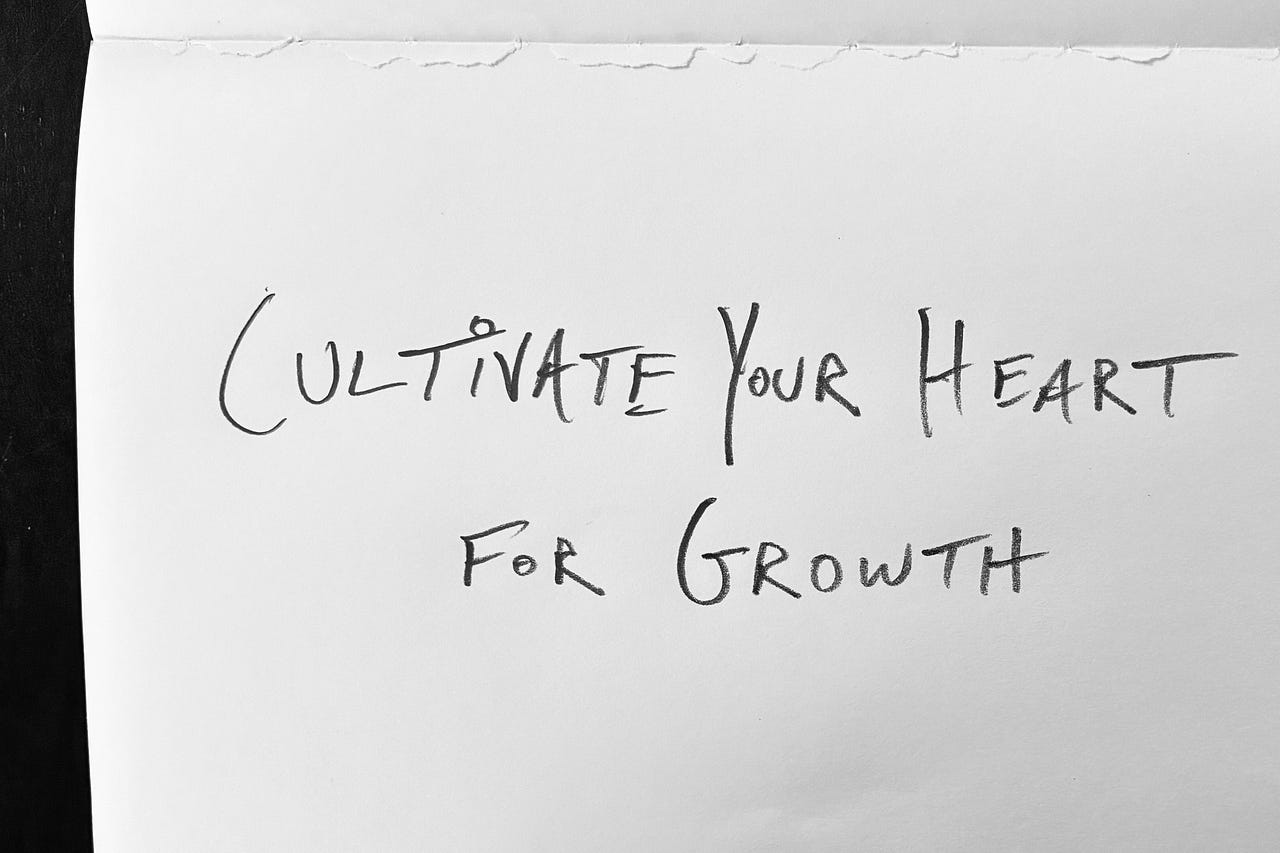 Cultivate Your Heart
For Growth